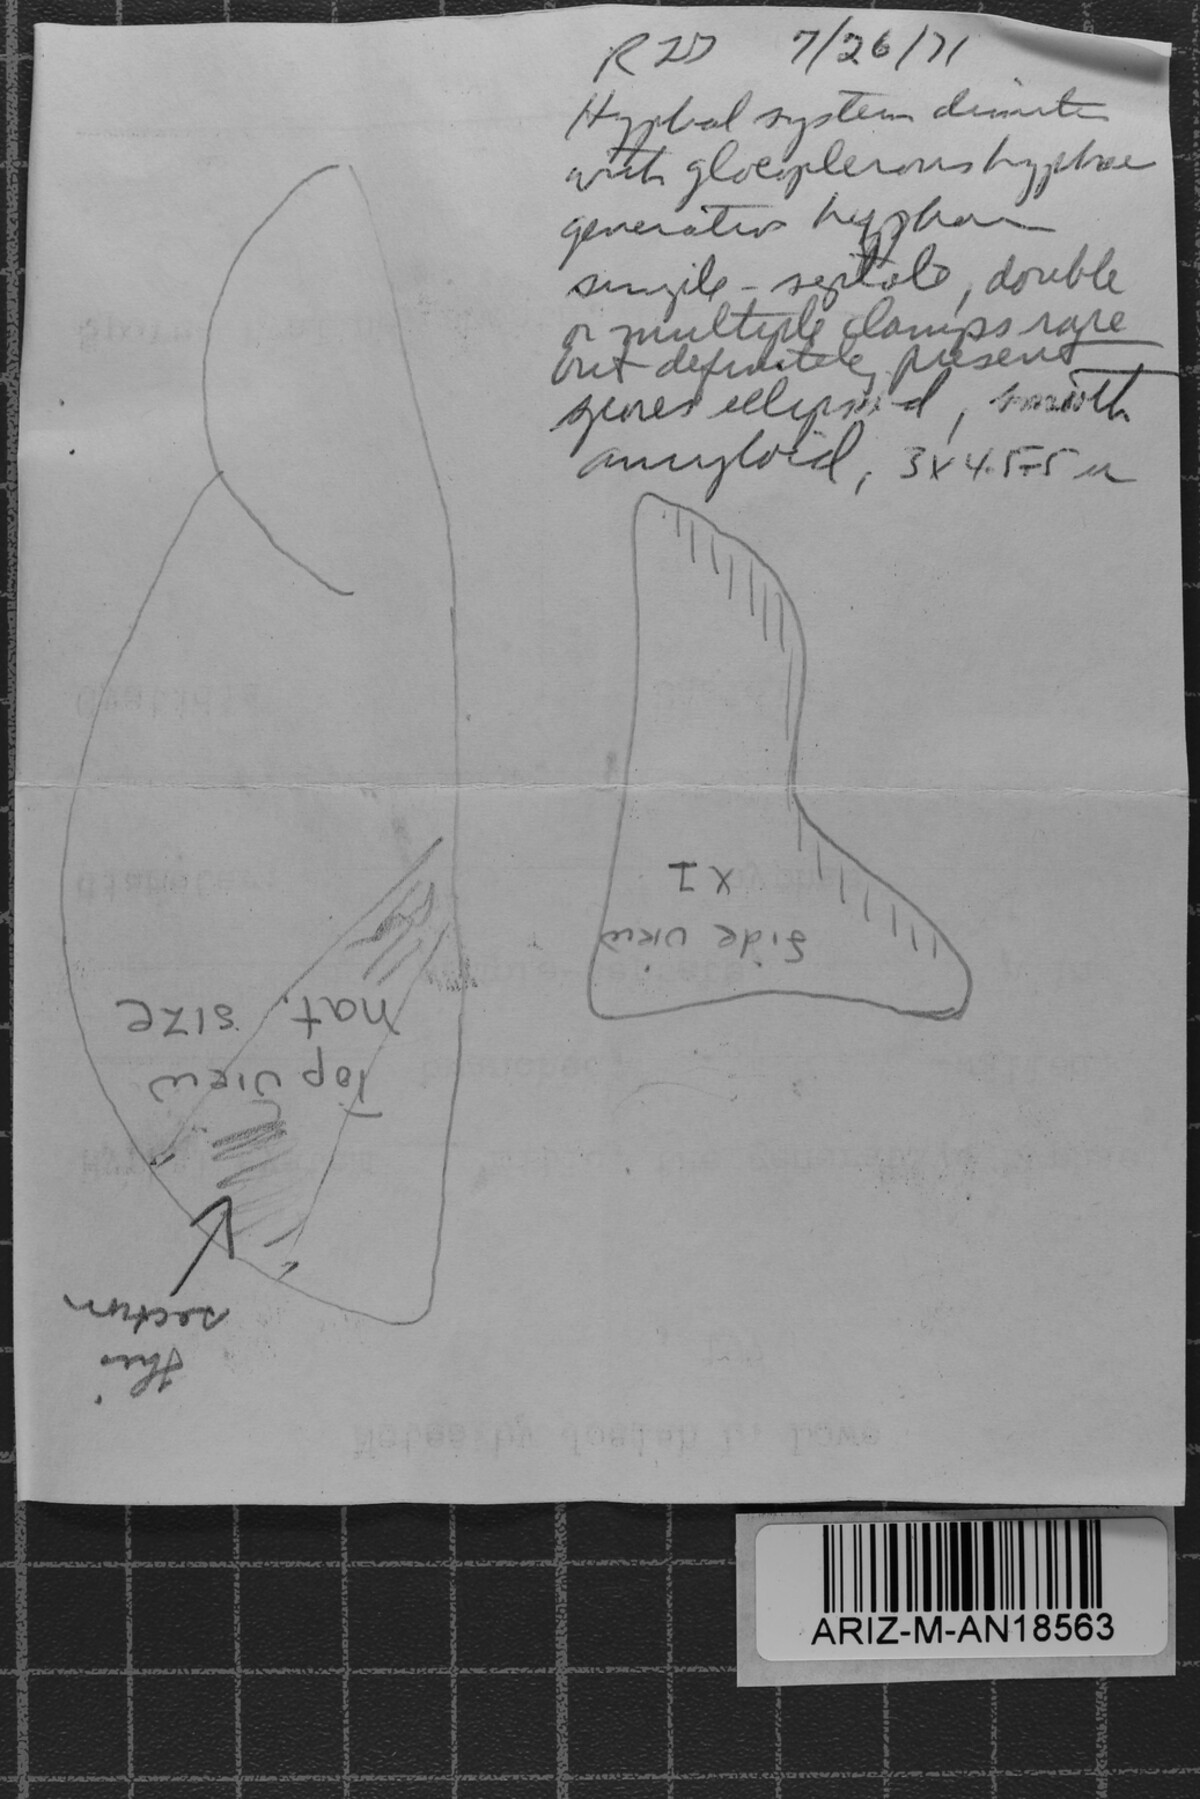 7/26/71
Hyphal system dimitic
with gloeoplerous hyphae
generative hyphae
simple-septate, double
or multiple clamps rare
but definitely present
spores ellipsoid, smooth
amyloid, 3x4.5-5 u
X1
Side view
nat. size
Top view
this
section
Notes by Josiah L. Lowe
ARIZ-M-AN18563